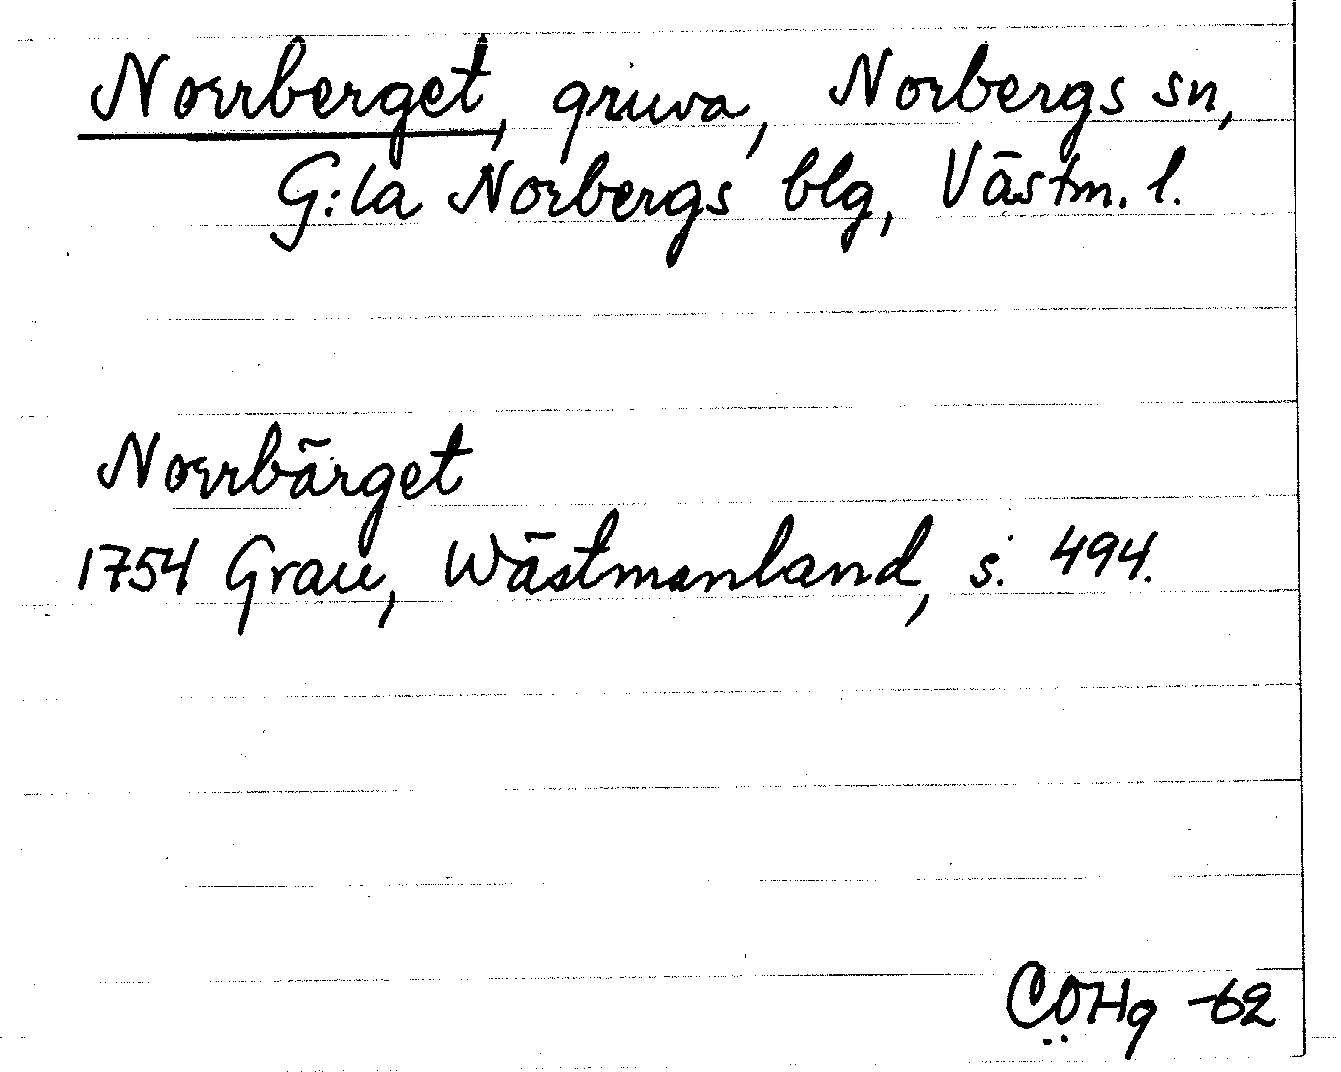 Norrberget, gruva, Norbergs sn,
G:la Norbergs blg, Västm. l.
Norrbärget
1754 Grau, Wästmanland, s. 494.
CÖHg -62